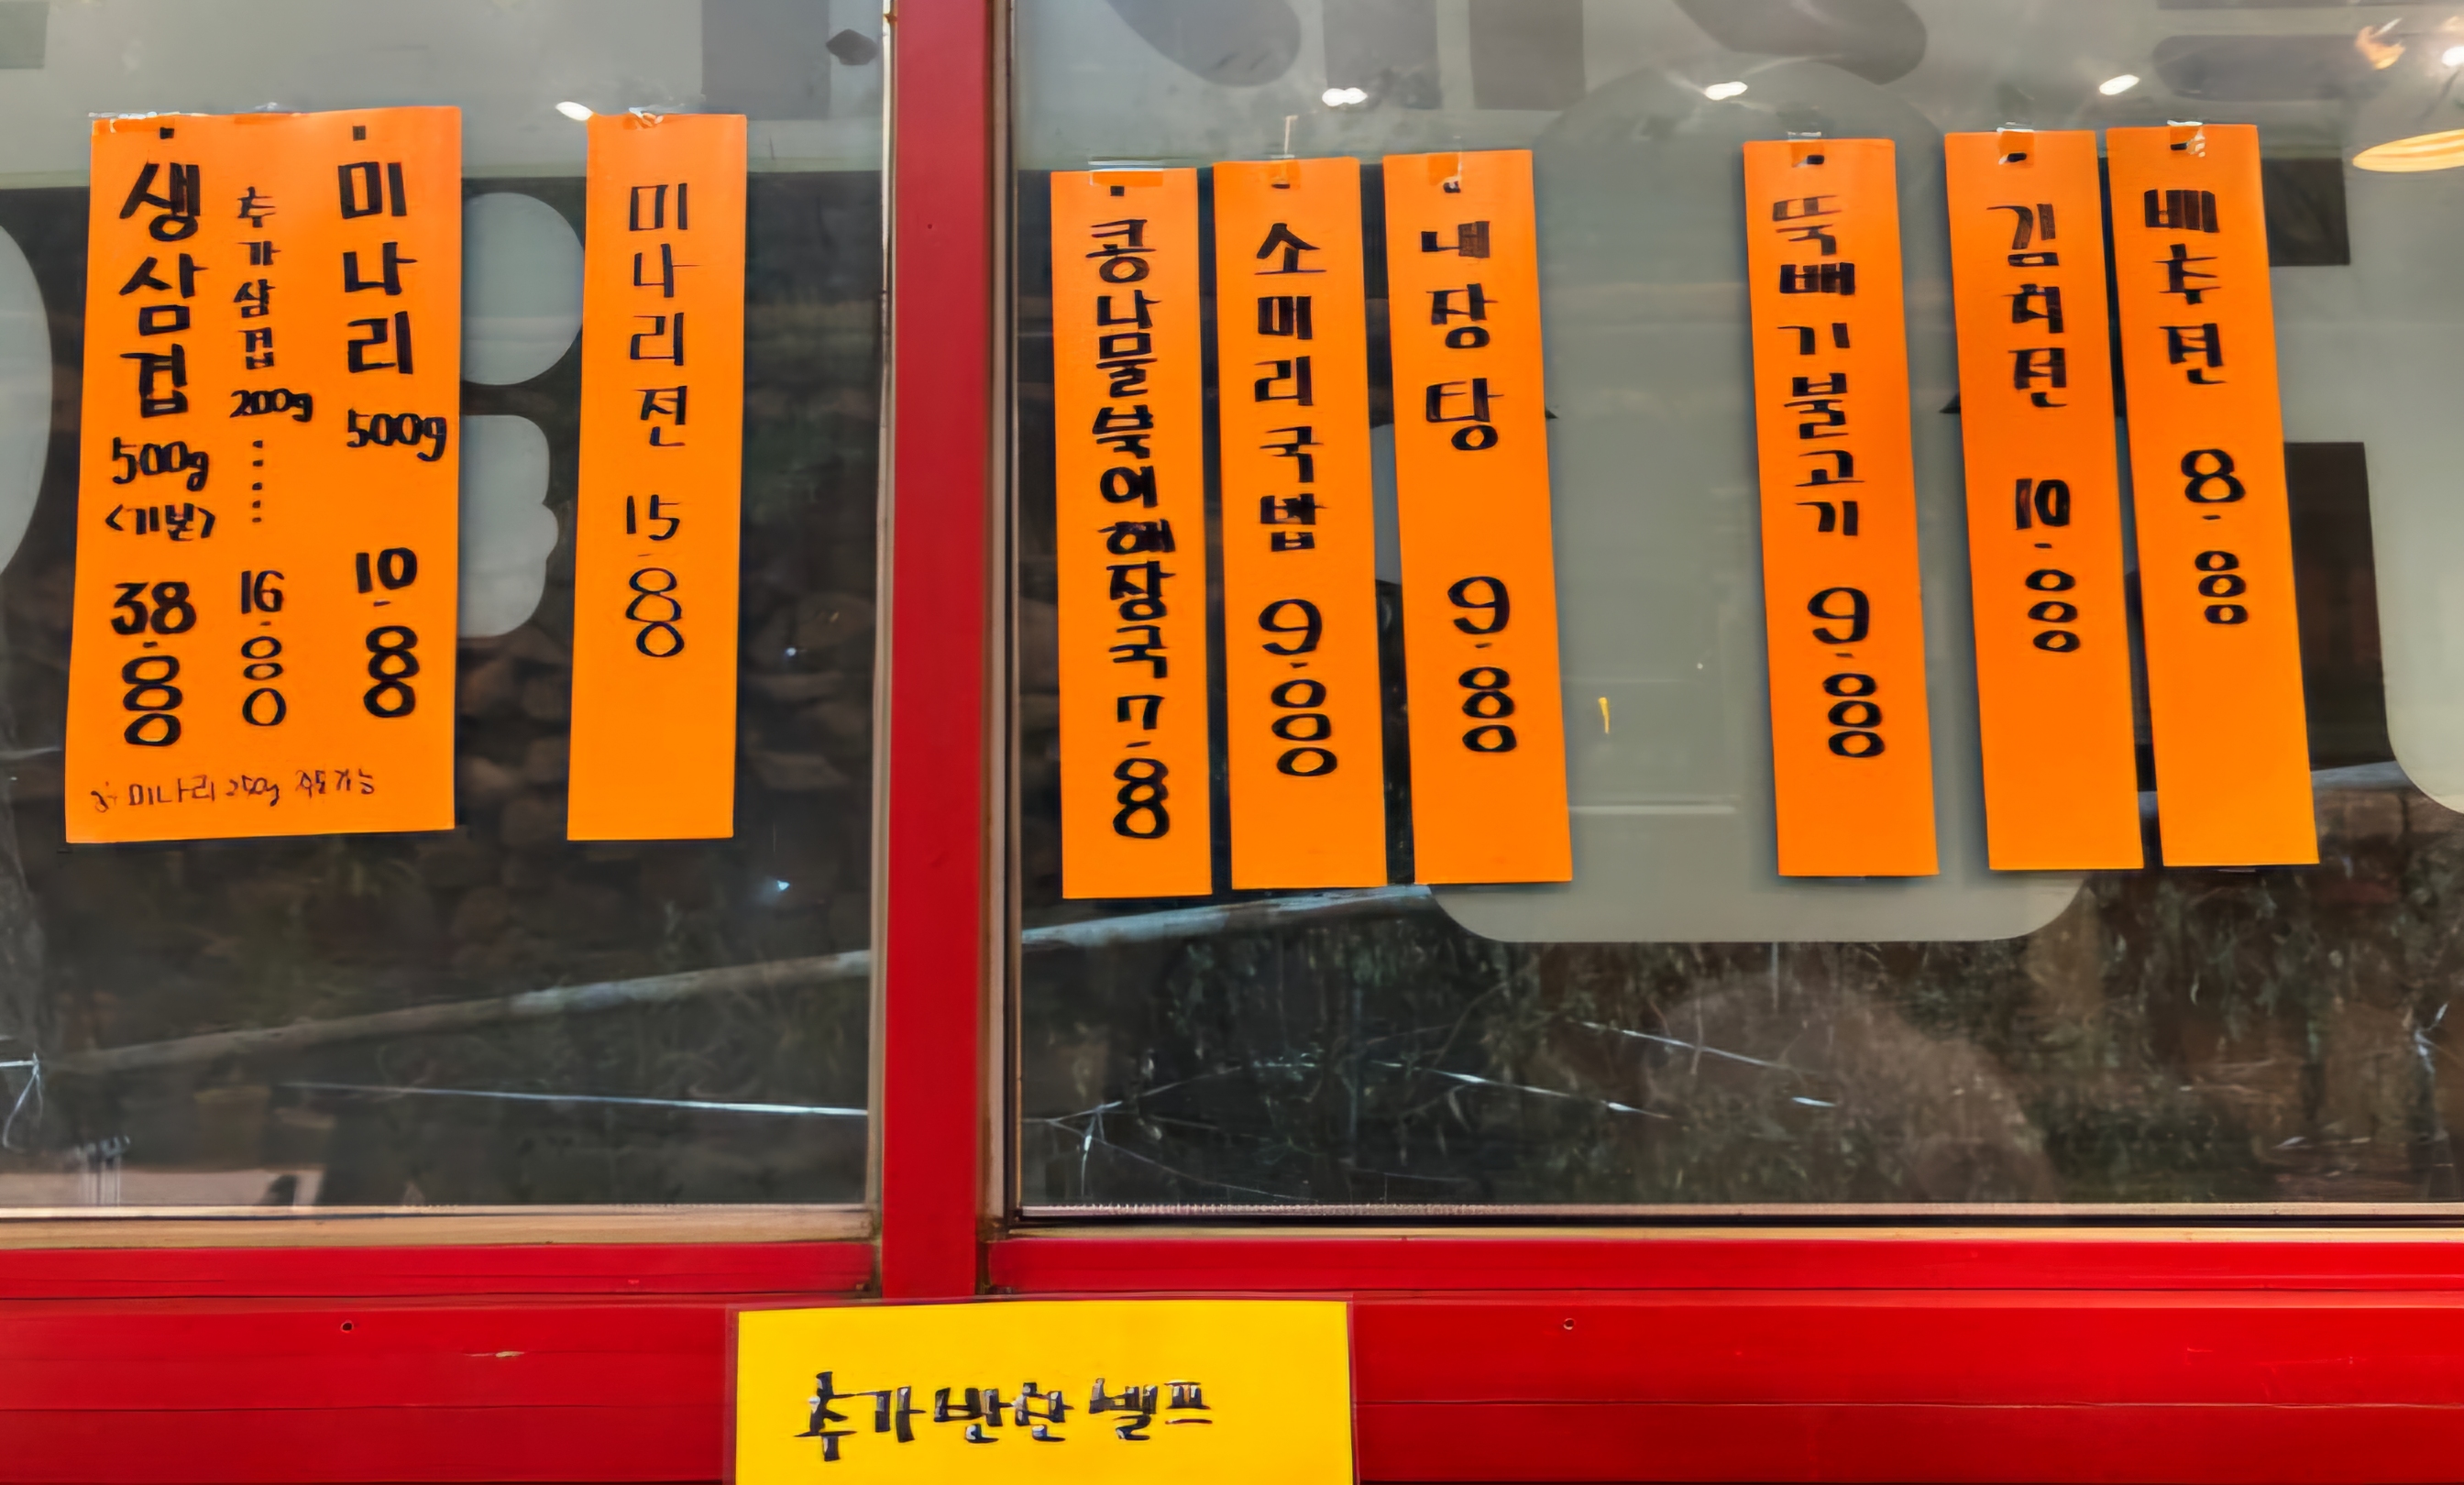 생삼겹 500g <기본> 38.000
추가삼겹 200g ...... 16.000
미나리 500g 10.000
※ 미나리 250g 주문가능
미나리전 15.000
콩나물북어해장국 7.000
소머리국밥 9.000
내장탕 9.000
뚝배기불고기 9.000
김치전 10.000
배추전 8.000
추가반찬 셀프